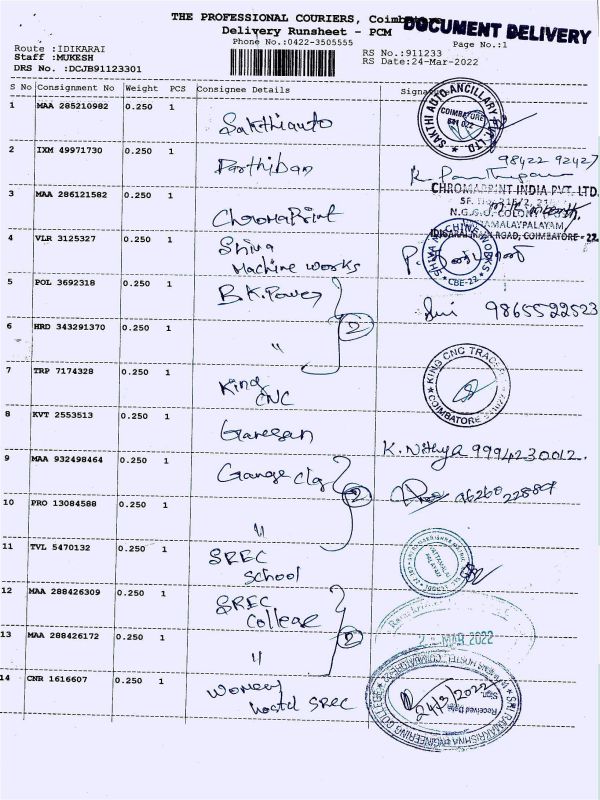 THE PROFESSIONAL COURIERS, Coimbatore
DOCUMENT DELIVERY
Delivery Runsheet - PCM
Phone No.:0422-3505555
Page No.:1
Route :IDIKARAI
RS No.:911233
Staff :MUKESH
RS Date:24-Mar-2022
DRS No. :DCJB91123301
S No Consignment No Weight PCS Consignee Details
1 MAA 285210982 0.250 1 Sakthiauto
SAKTHI AUTO ANCILLARY PVT. LTD.
COIMBATORE
641 022
2 IXM 49971730 0.250 1 Parthiban
98422 92427
3 MAA 286121582 0.250 1 ChromaPrint
CHROMAPRINT INDIA PVT. LTD.
N.G.G.O. COLONY
IDIGARAI ROAD, COIMBATORE - 22
4 VLR 3125327 0.250 1 Shiva
Machine works
SHIVA MACHINE WORKS
CBE-22
5 POL 3692318 0.250 1 B.K.Power
9865522523
6 HRD 343291370 0.250 1 "
2
7 TRP 7174328 0.250 1 King
CNC
KING CNC
COIMBATORE
8 KVT 2553513 0.250 1 Ganesan
K. Nithya 9994230012.
9 MAA 932498464 0.250 1
10 PRO 13084588 0.250 1 "
2
11 TVL 5470132 0.250 1 SREC
School
12 MAA 288426309 0.250 1 SREC
College
MAR 2022
13 MAA 288426172 0.250 1 "
2
14 CNR 1616607 0.250 1 Women
hostel SREC
SRI RAMAKRISHNA ENGINEERING COLLEGE
24/3/2022
Received Date
Sign